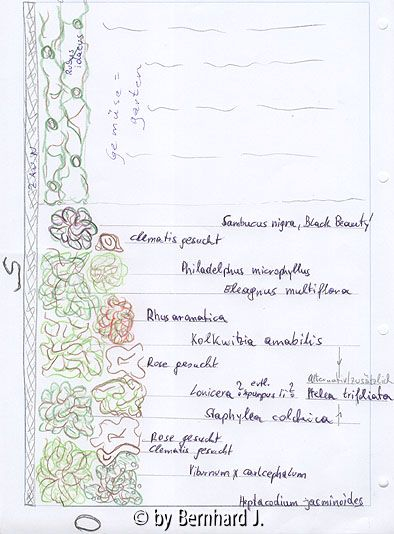 Rubus
idaeus
Gemüse=
garten
ZAUN
Sambucus nigra, Black Beauty'
Clematis gesucht
Philadelphus microphyllus
Eleagnus multiflora
Rhus aromatica
Kolkwitzia amabilis
Rose gesucht
Alternativ/zusätzlich
Lonicera ? evtl.
Ptelea trifoliata
Staphylea colchica
Rose gesucht
Clematis gesucht
Viburnum x carlcephalum
Heptacodium jasminoides
S
O
© by Bernhard J.